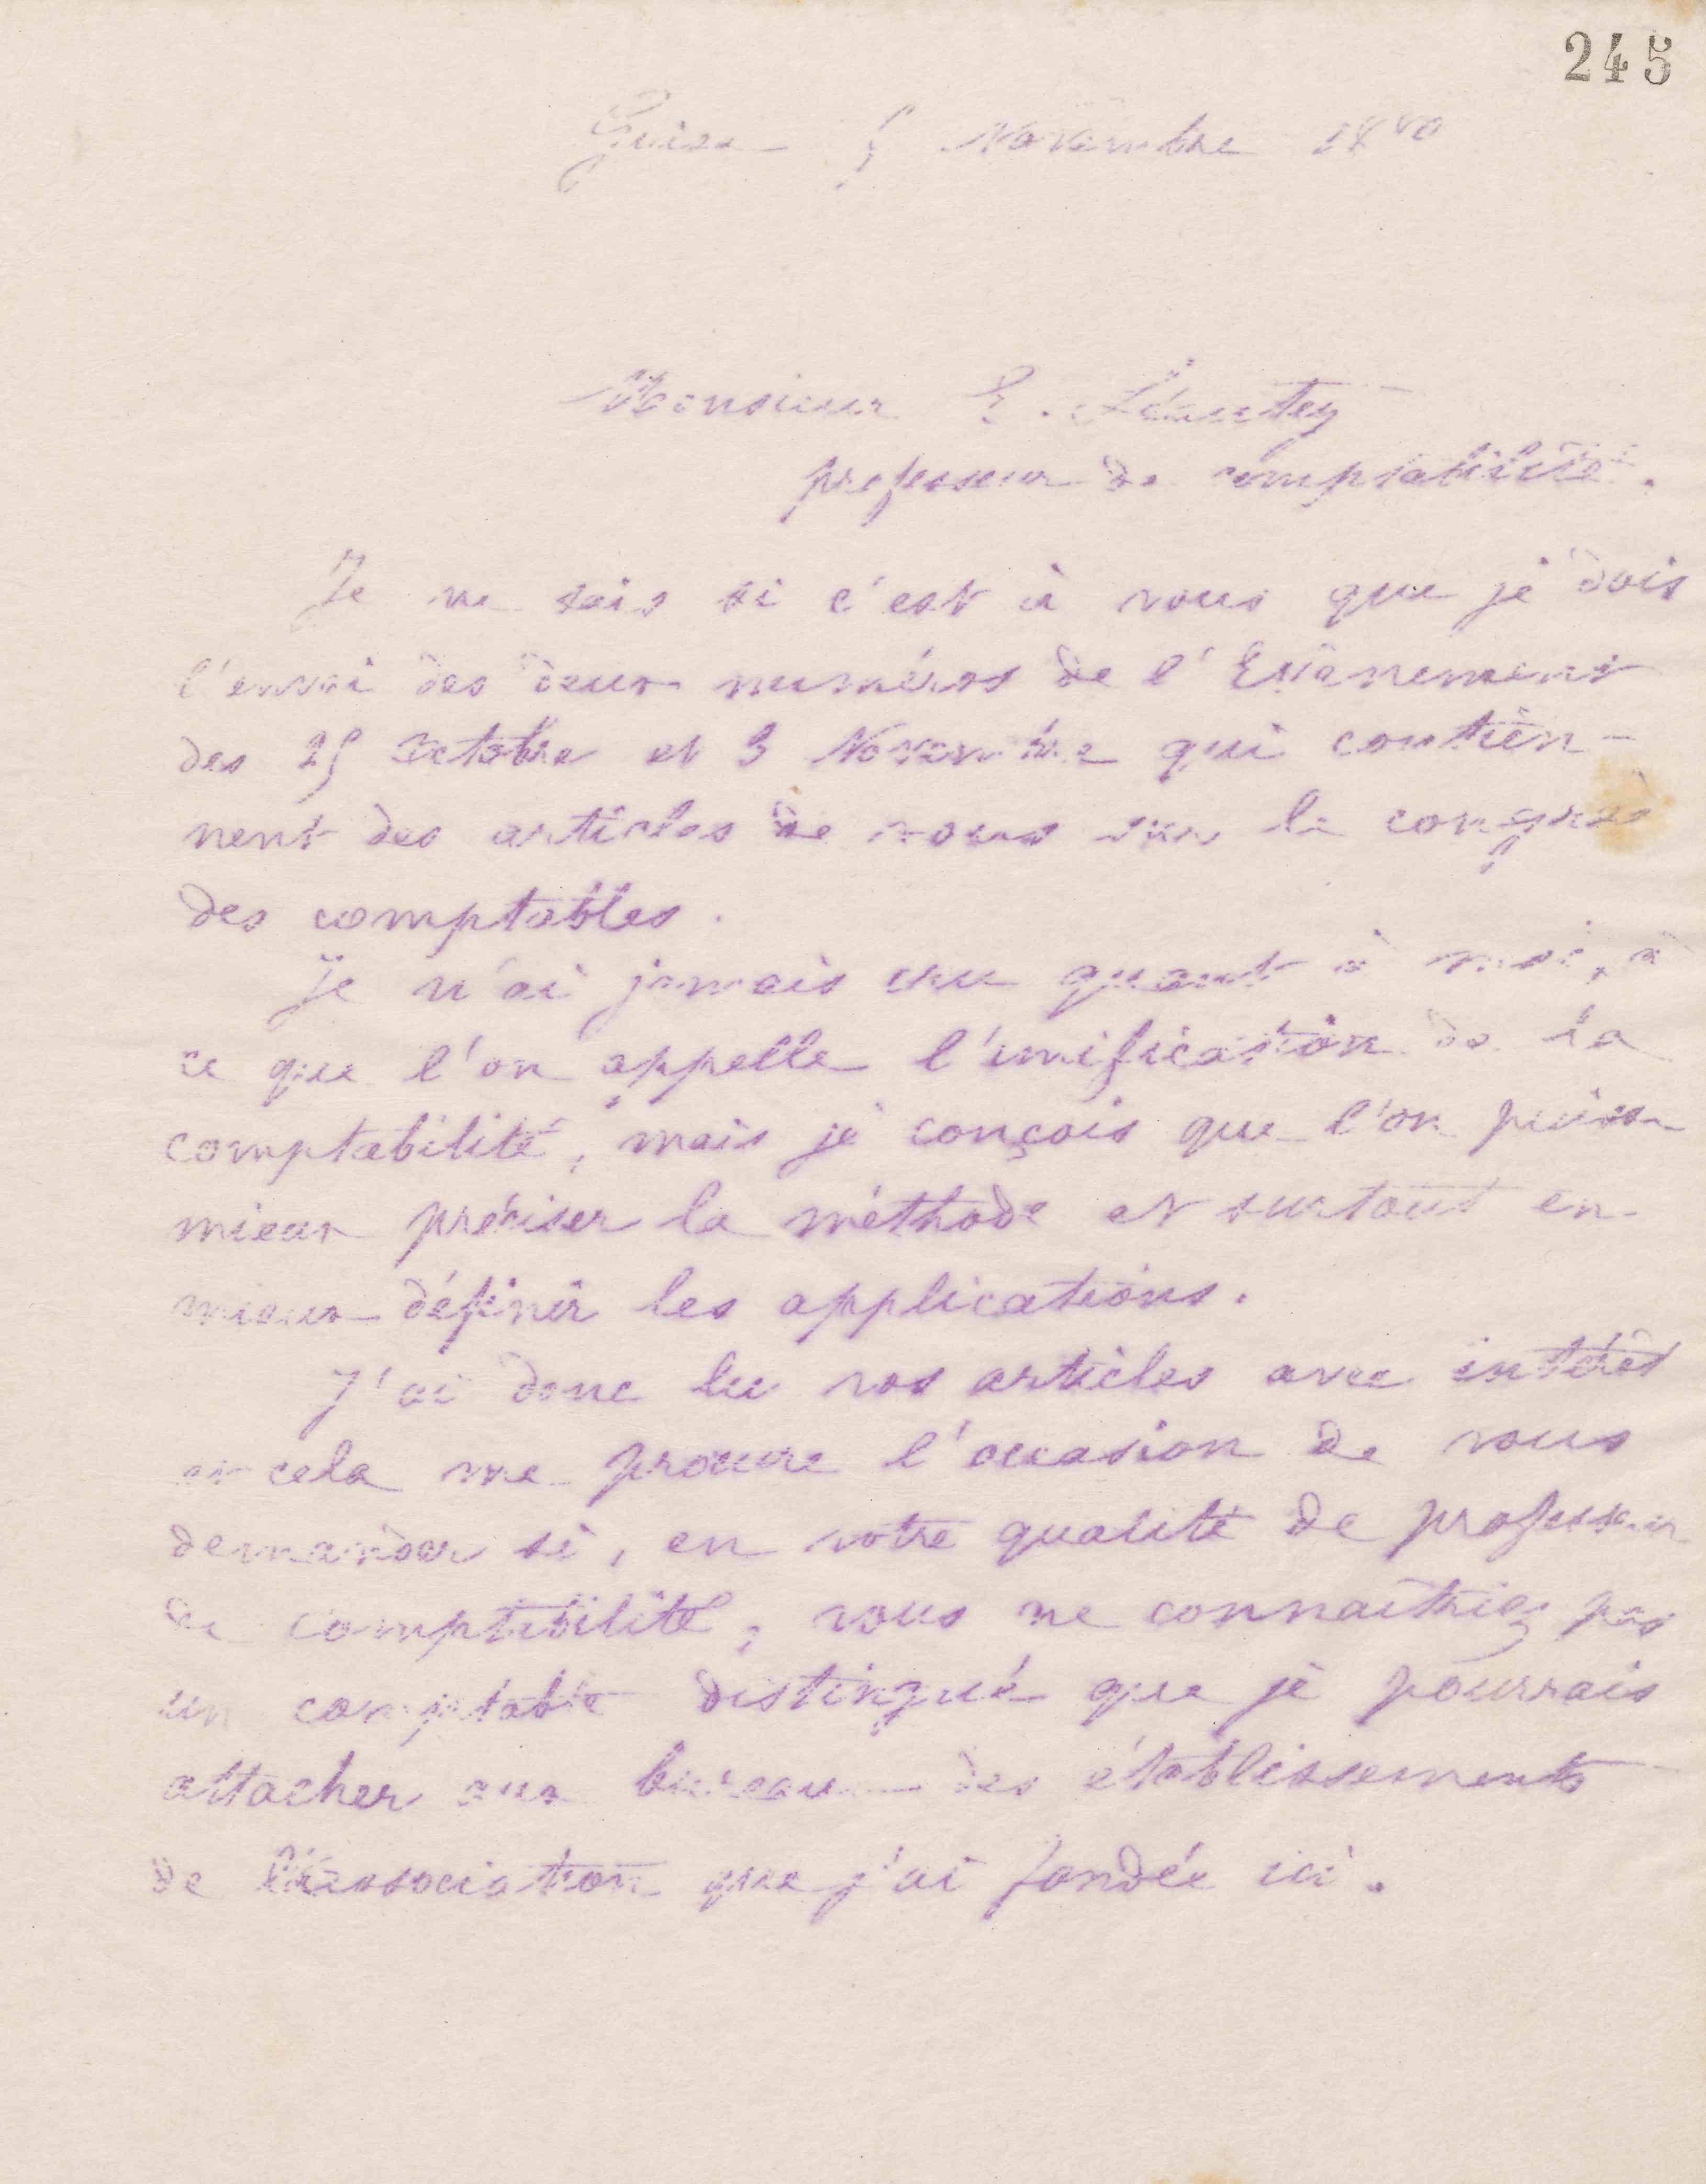 245
Guise 5 Novembre 1880
Monsieur E. Léautey
professeur de comptabilité.
Je ne sais si c'est à vous que je dois
l'envoi des deux numéros de l'Evènement
des 25 Octobre et 3 Novembre qui contien-
nent des articles de vous sur le congrès
des comptables.
Je n'ai jamais cru quant à moi, à
ce que l'on appelle l'unification de la
comptabilité, mais je conçois que l'on puisse
mieux préciser la méthode et surtout en
mieux définir les applications.
J'ai donc lu vos articles avec intérêt
et cela me procure l'occasion de vous
demander si, en votre qualité de professeur
de comptabilité, vous ne connaîtriez pas
un comptable distingué que je pourrais
attacher aux bureaux des établissements
de l'association que j'ai fondée ici.